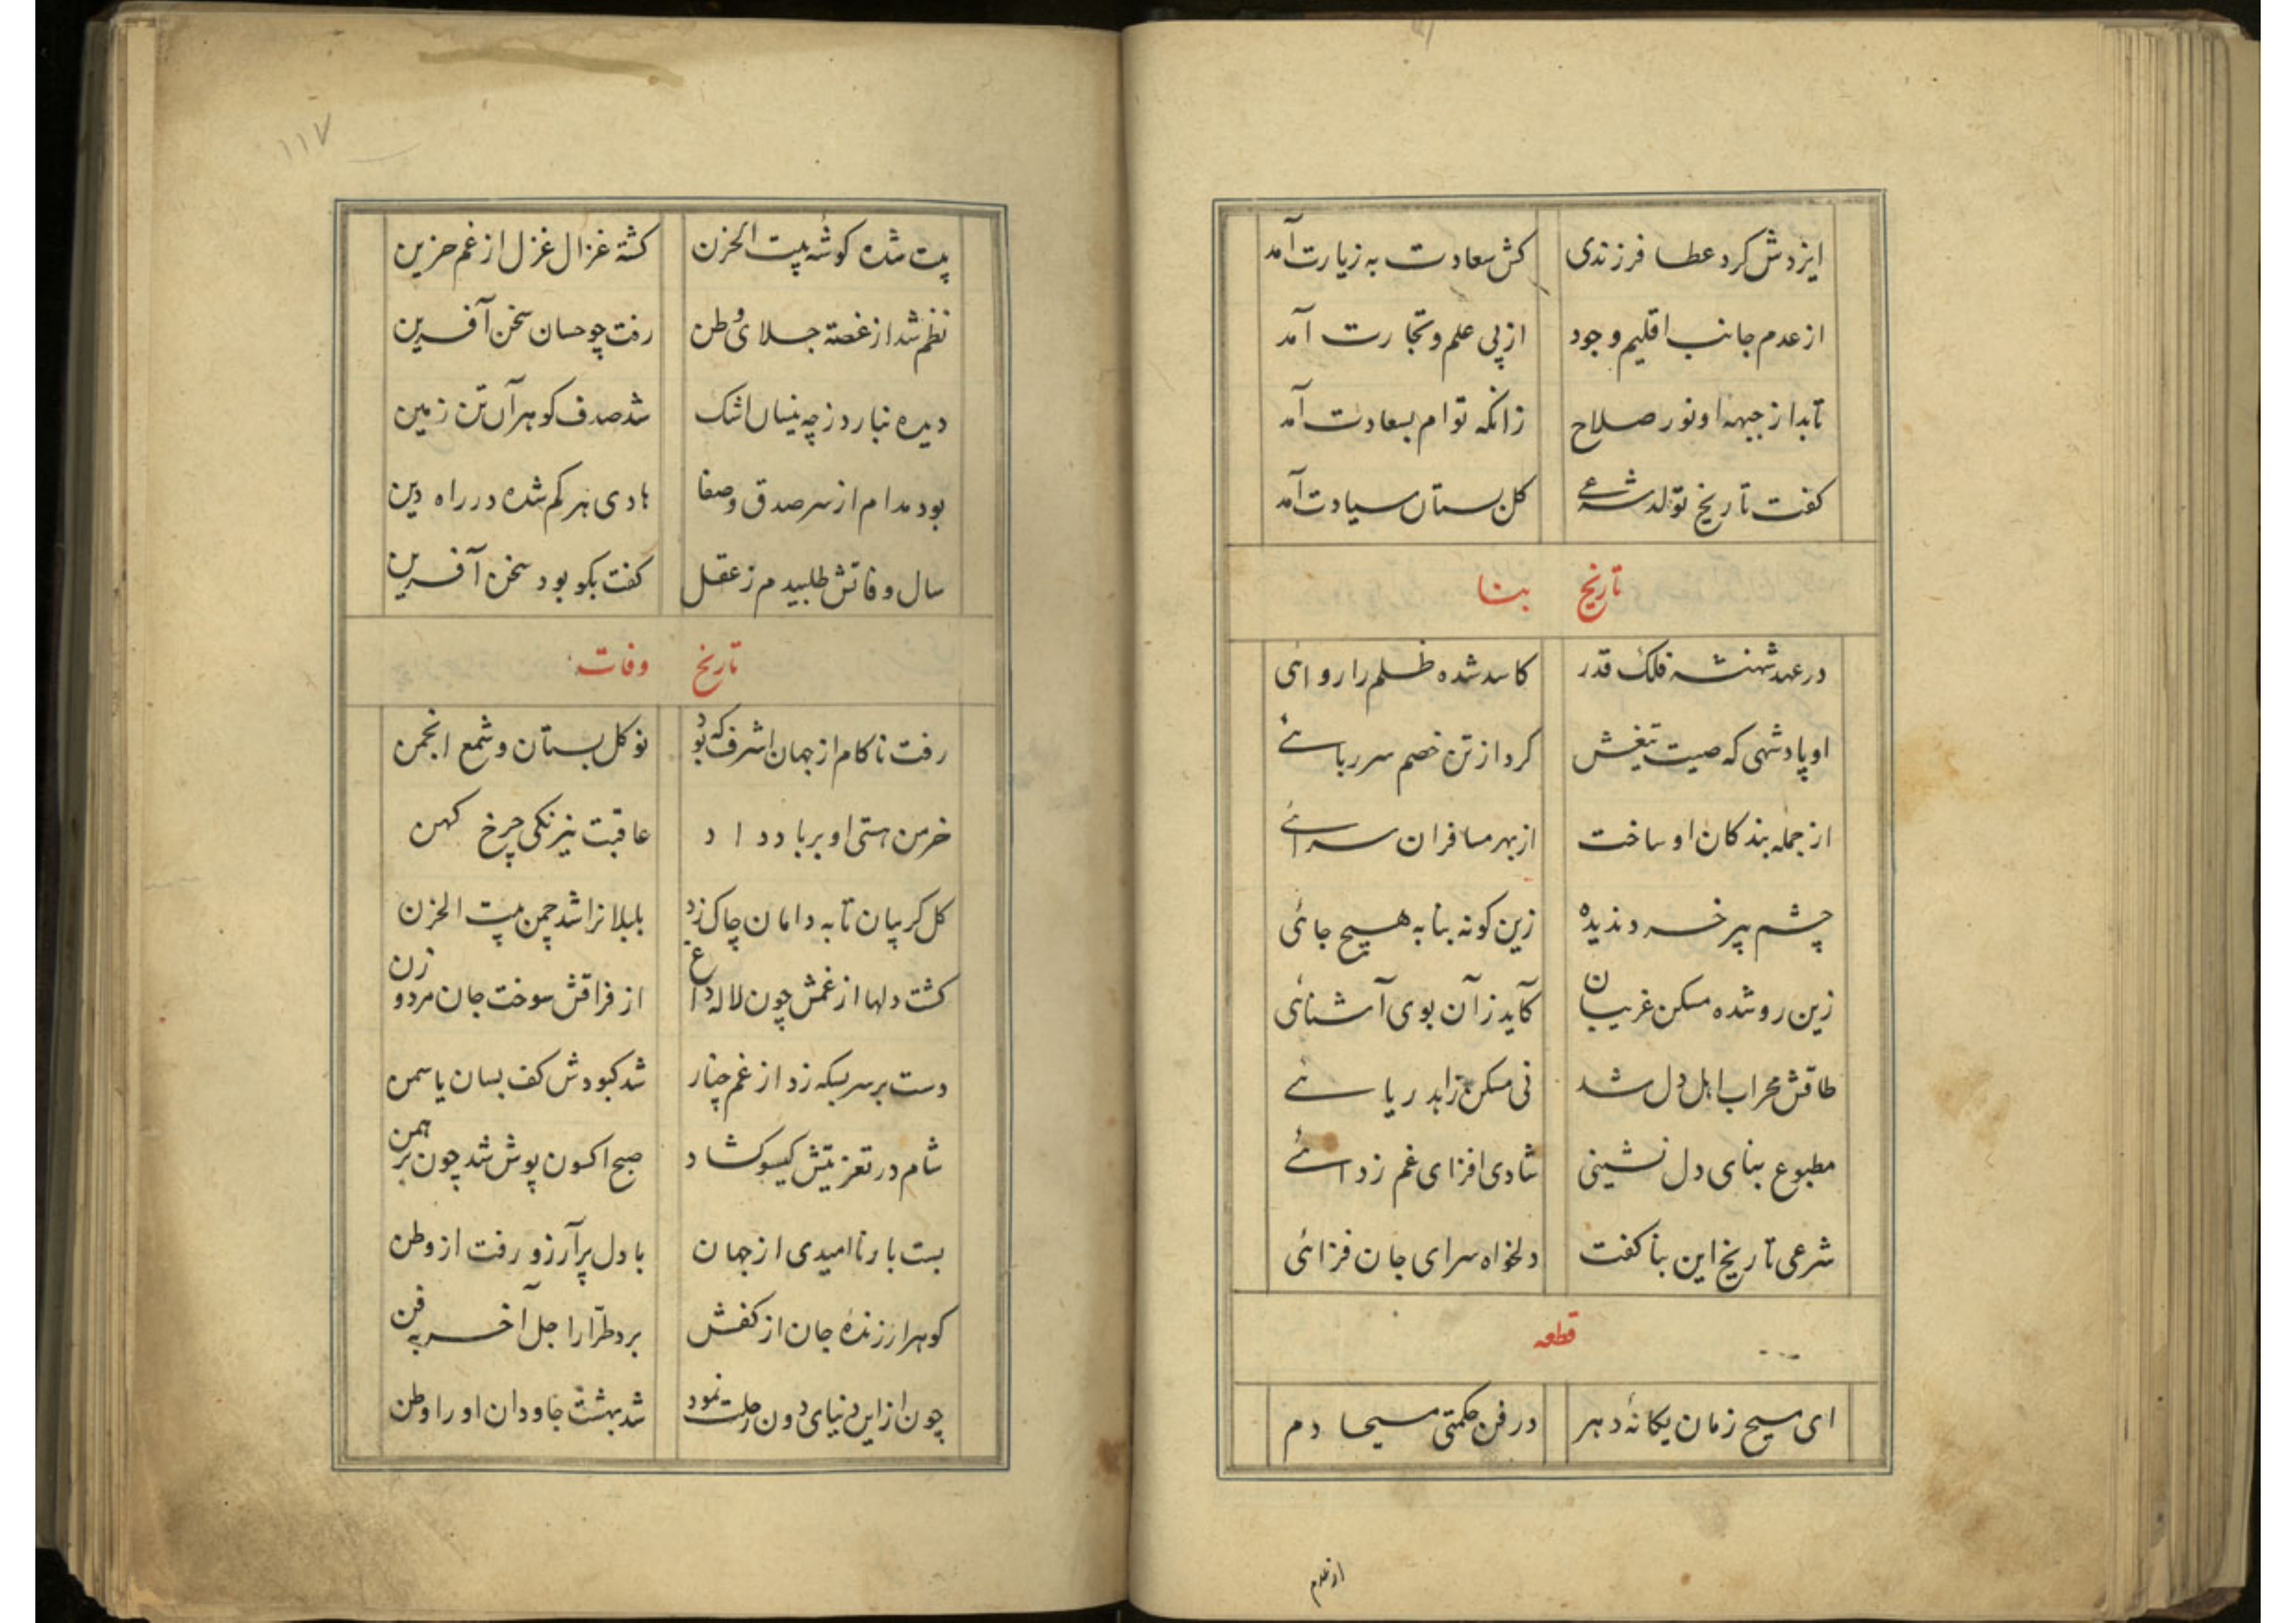 ایزدش کرد عطا فرزندی کش سعادت به زیارت آمد
از عدم جانب اقلیم وجود از پی علم و تجارت آمد
تابد از جبهه او نور صلاح زانکه توام بسعادت آمد
کفت تاریخ تولد شرعی کل بستان سیادت آمد
تاریخ بنا
در عهد شهنشه فلک قدر کاسد شده ظلم را روائی
او پادشهی که صیت تیغش کرد از تن خصم سر ربائی
از جمله بندکان او ساخت از بهر مسافران سرائی
چشم پیر خرد ندیده زین کونه بنا به هیچ جائی
زین رو شده مسکن غریبان کآید ز آن بوی آشنائی
طاقش محراب اهل دل شد نی مسکن زاهد ریائی
مطبوع بنای دل نشینی شادی افزای غم زدائی
شرعی تاریخ این بنا کفت دلخواه سرای جان فزائی
قطعه
ای مسیح زمان یکانهٔ دهر در فن حکمتی مسیحا دم
۱۱۷
بیت شده کوشهٔ بیت الحزن کشته غزال غزل از غم حزین
نظم شد از غصه جلای وطن رفت چو حسان سخن آفرین
دیده نبارد ز چه نیسان اشک شد صدف کوهر آن تن زمین
بود مدام از سر صدق و صفا هادی هر کم شده در راه دین
سال وفاتش طلبیدم ز عقل کفت بکو بود سخن آفرین
تاریخ وفات
رفت ناکام از جهان اشرف که بود نو کل بستان و شمع انجمن
خرمن هستی او بر باد داد عاقبت نیرنکی چرخ کهن
کل کریبان تا به دامان چاک زد بلبلانرا شد چمن بیت الحزن
کشت دلها از غمش چون لاله داغ از فراقش سوخت جان مرد و زن
دست بر سر بسکه زد از غم چنار شد کبودش کف بسان یاسمن
شام در تعزیتش کیسو کشاد صبح اکسون پوش شد چون برهمن
بست بار ناامیدی از جهان با دل پر آرزو رفت از وطن
کوهر ارزندهٔ جان از کفش برد طرّار اجل آخر به فن
چون از این دنیای دون رحلت نمود شد بهشت جاودان او را وطن